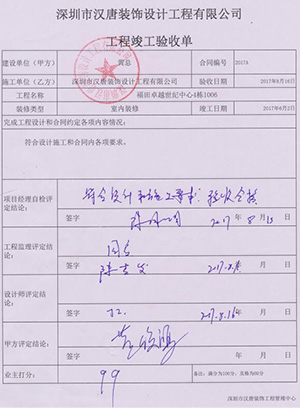 深圳市汉唐装饰设计工程有限公司
工程竣工验收单
建设单位（甲方） 黄总 合同编号 2017A
施工单位（乙方） 深圳市汉唐装饰设计工程有限公司 验收日期 2017年8月16日
工程名称 福田卓越世纪中心4栋1006
装修类型 室内装修 竣工日期 2017年8月2日
完成工程设计和合约定各项内容情况：
符合设计施工和合同内各项要求.
项目经理自检评定结论： 符合设计和施工要求 验收合格
签字 2017 年 8 月 15 日
工程监理评定结论： 同意
签字 2017.8. 年 月 日
设计师评定结论：
签字 2017.8.16 年 月 日
甲方评定结论：
签字 年 月 日
业主打分： 99 备注：满分为100分；及格为60分
深圳市汉唐装饰工程管理中心